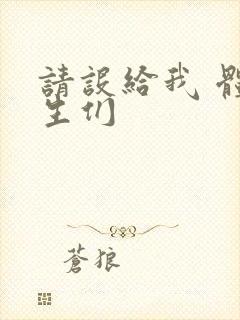 請設給我 體
生们
蒼狼